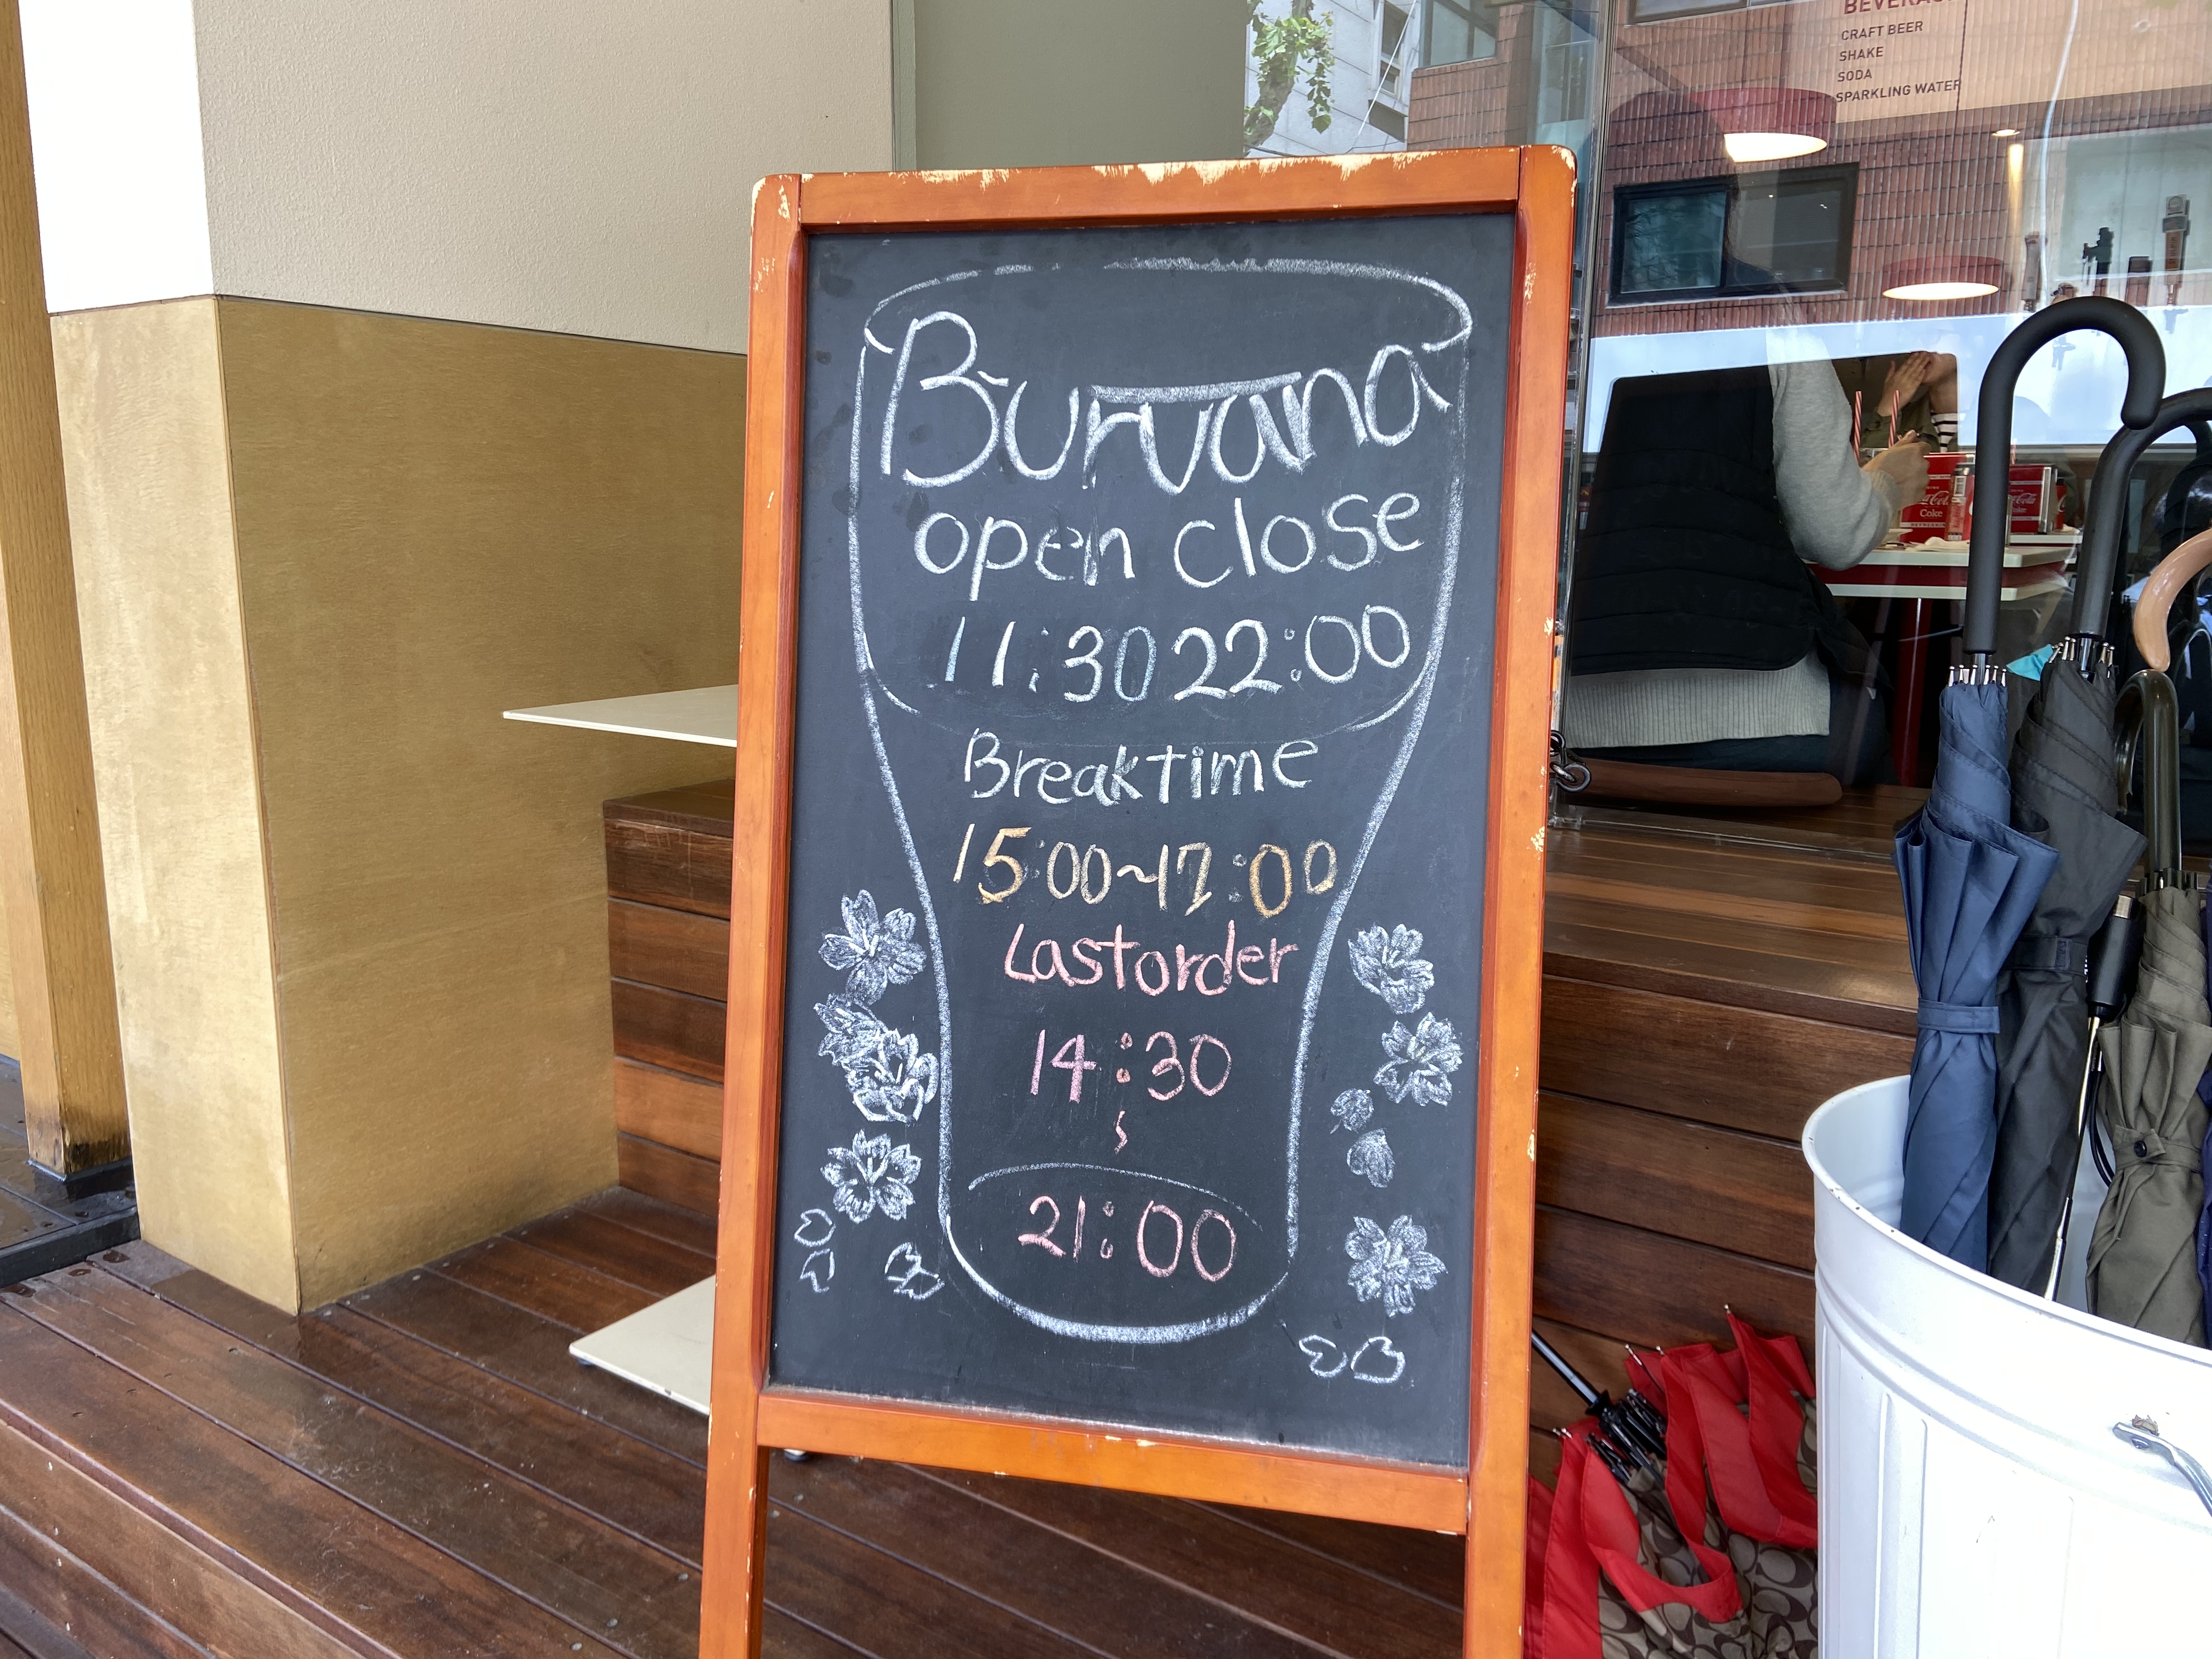 Burvana
open close
11:30 22:00
Breaktime
15:00~17:00
Lastorder
14:30
~
21:00
CRAFT BEER
SHAKE
SODA
SPARKLING WATER
Coke